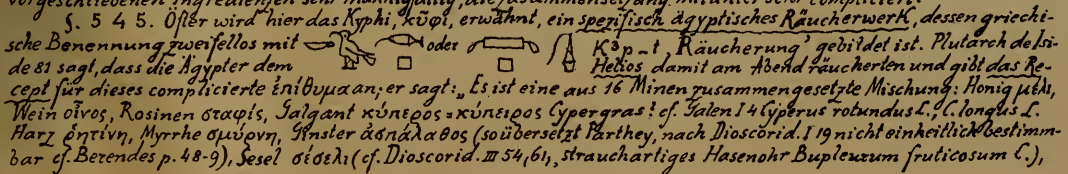 vorgeschriebenen Ingredienzen sehr mannigfaltig, die Zusammensetzung mitunter sehr compliciert.
§. 545. Öfter wird hier das Kyphi, κῦφι, erwähnt, ein spezifisch ägyptisches Räucherwerk, dessen griechi-
sche Benennung zweifellos mit oder K³p-t ‚Räucherung' gebildet ist. Plutarch de Isi-
de 81 sagt, dass die Ägypter dem Helios damit am Abend räucherten und gibt das Re-
cept für dieses complicierte ἐπίθυμα an; er sagt: „Es ist eine aus 16 Minen zusammengesetzte Mischung: Honig μέλι,
Wein οἶνος, Rosinen σταφίς, Galgant κύπερος = κύπειρος Cypergras? cf. Galen I 4 Cyperus rotundus L., C. longus L.
Harz ῥητίνη, Myrrhe σμύρνη, Ginster ἀσπάλαθος (so übersetzt Parthey, nach Dioscorid. I 19 nicht einheitlich bestimm-
bar cf. Berendes p. 48-9), Sesel σέσελι (cf. Dioscorid. III 54, 61, strauchartiges Hasenohr Bupleurum fruticosum L.),